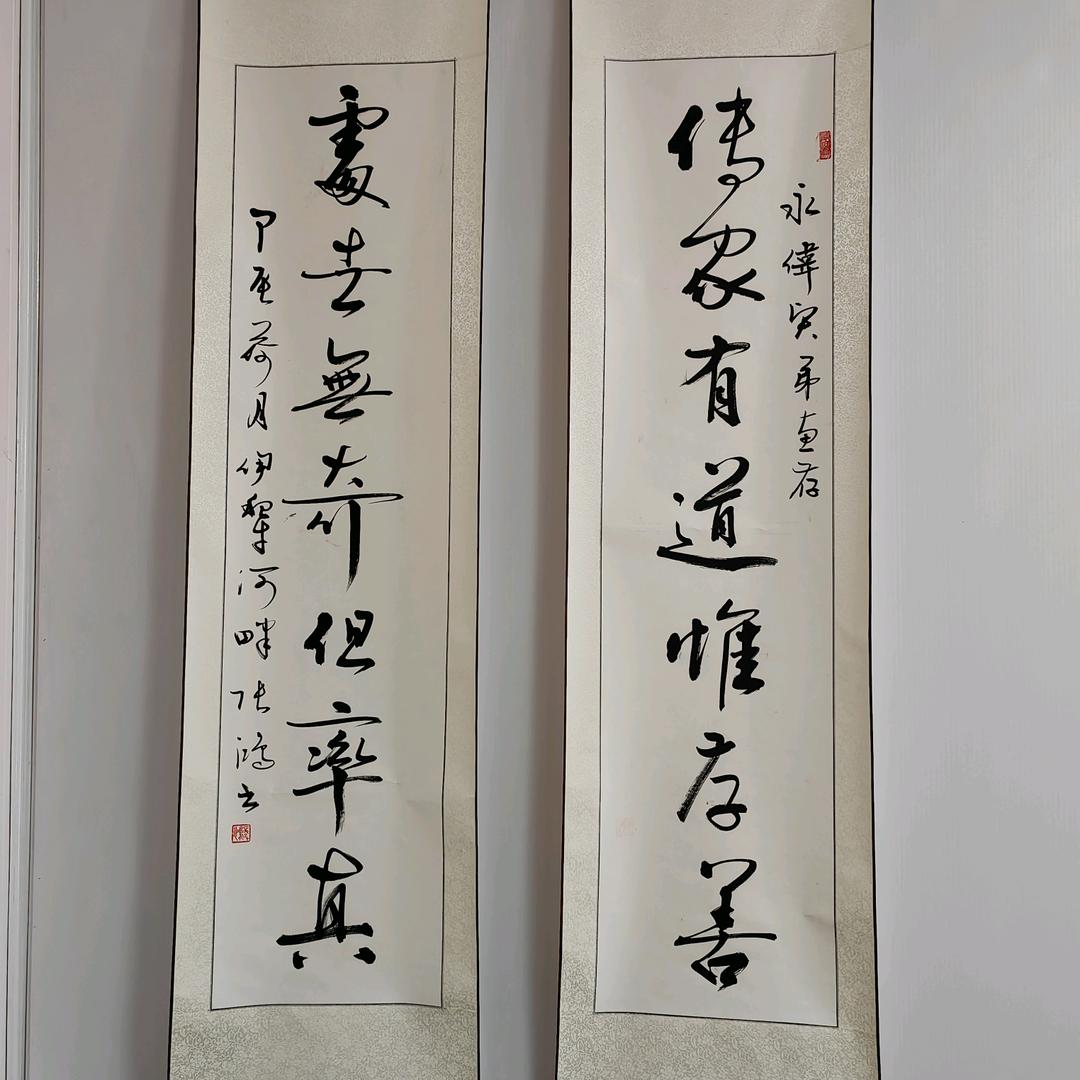 永偉賢弟惠存
傳家有道惟存善
處世無奇但率真
甲辰荷月伊犁河畔張鴻書